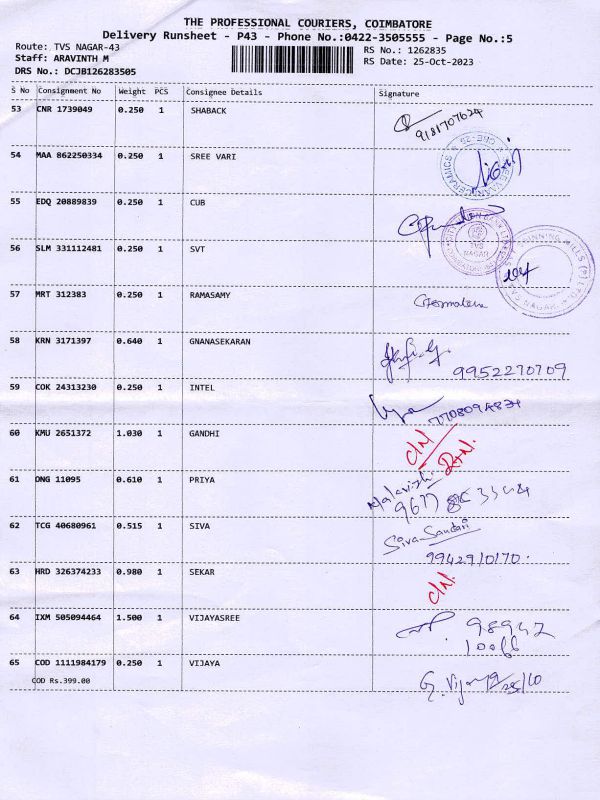 THE PROFESSIONAL COURIERS, COIMBATORE
Delivery Runsheet - P43 - Phone No.:0422-3505555 - Page No.:5
Route: TVS NAGAR-43
RS No.: 1262835
Staff: ARAVINTH M
RS Date: 25-Oct-2023
DRS No.: DCJB126283505
S No Consignment No Weight PCS Consignee Details Signature
53 CNR 1739049 0.250 1 SHABACK
9181707624
54 MAA 862250334 0.250 1 SREE VARI
55 EDQ 20889839 0.250 1 CUB
TVS
NAGAR
56 SLM 331112481 0.250 1 SVT
57 MRT 312383 0.250 1 RAMASAMY
58 KRN 3171397 0.640 1 GNANASEKARAN
9952270709
59 COK 24313230 0.250 1 INTEL
60 KMU 2651372 1.030 1 GANDHI
61 DNG 11095 0.610 1 PRIYA
62 TCG 40680961 0.515 1 SIVA
Siva Sundari
9942910170.
63 HRD 326374233 0.980 1 SEKAR
64 IXM 505094464 1.500 1 VIJAYASREE
98947
10066
65 COD 1111984179 0.250 1 VIJAYA
COD Rs.399.00
25/10